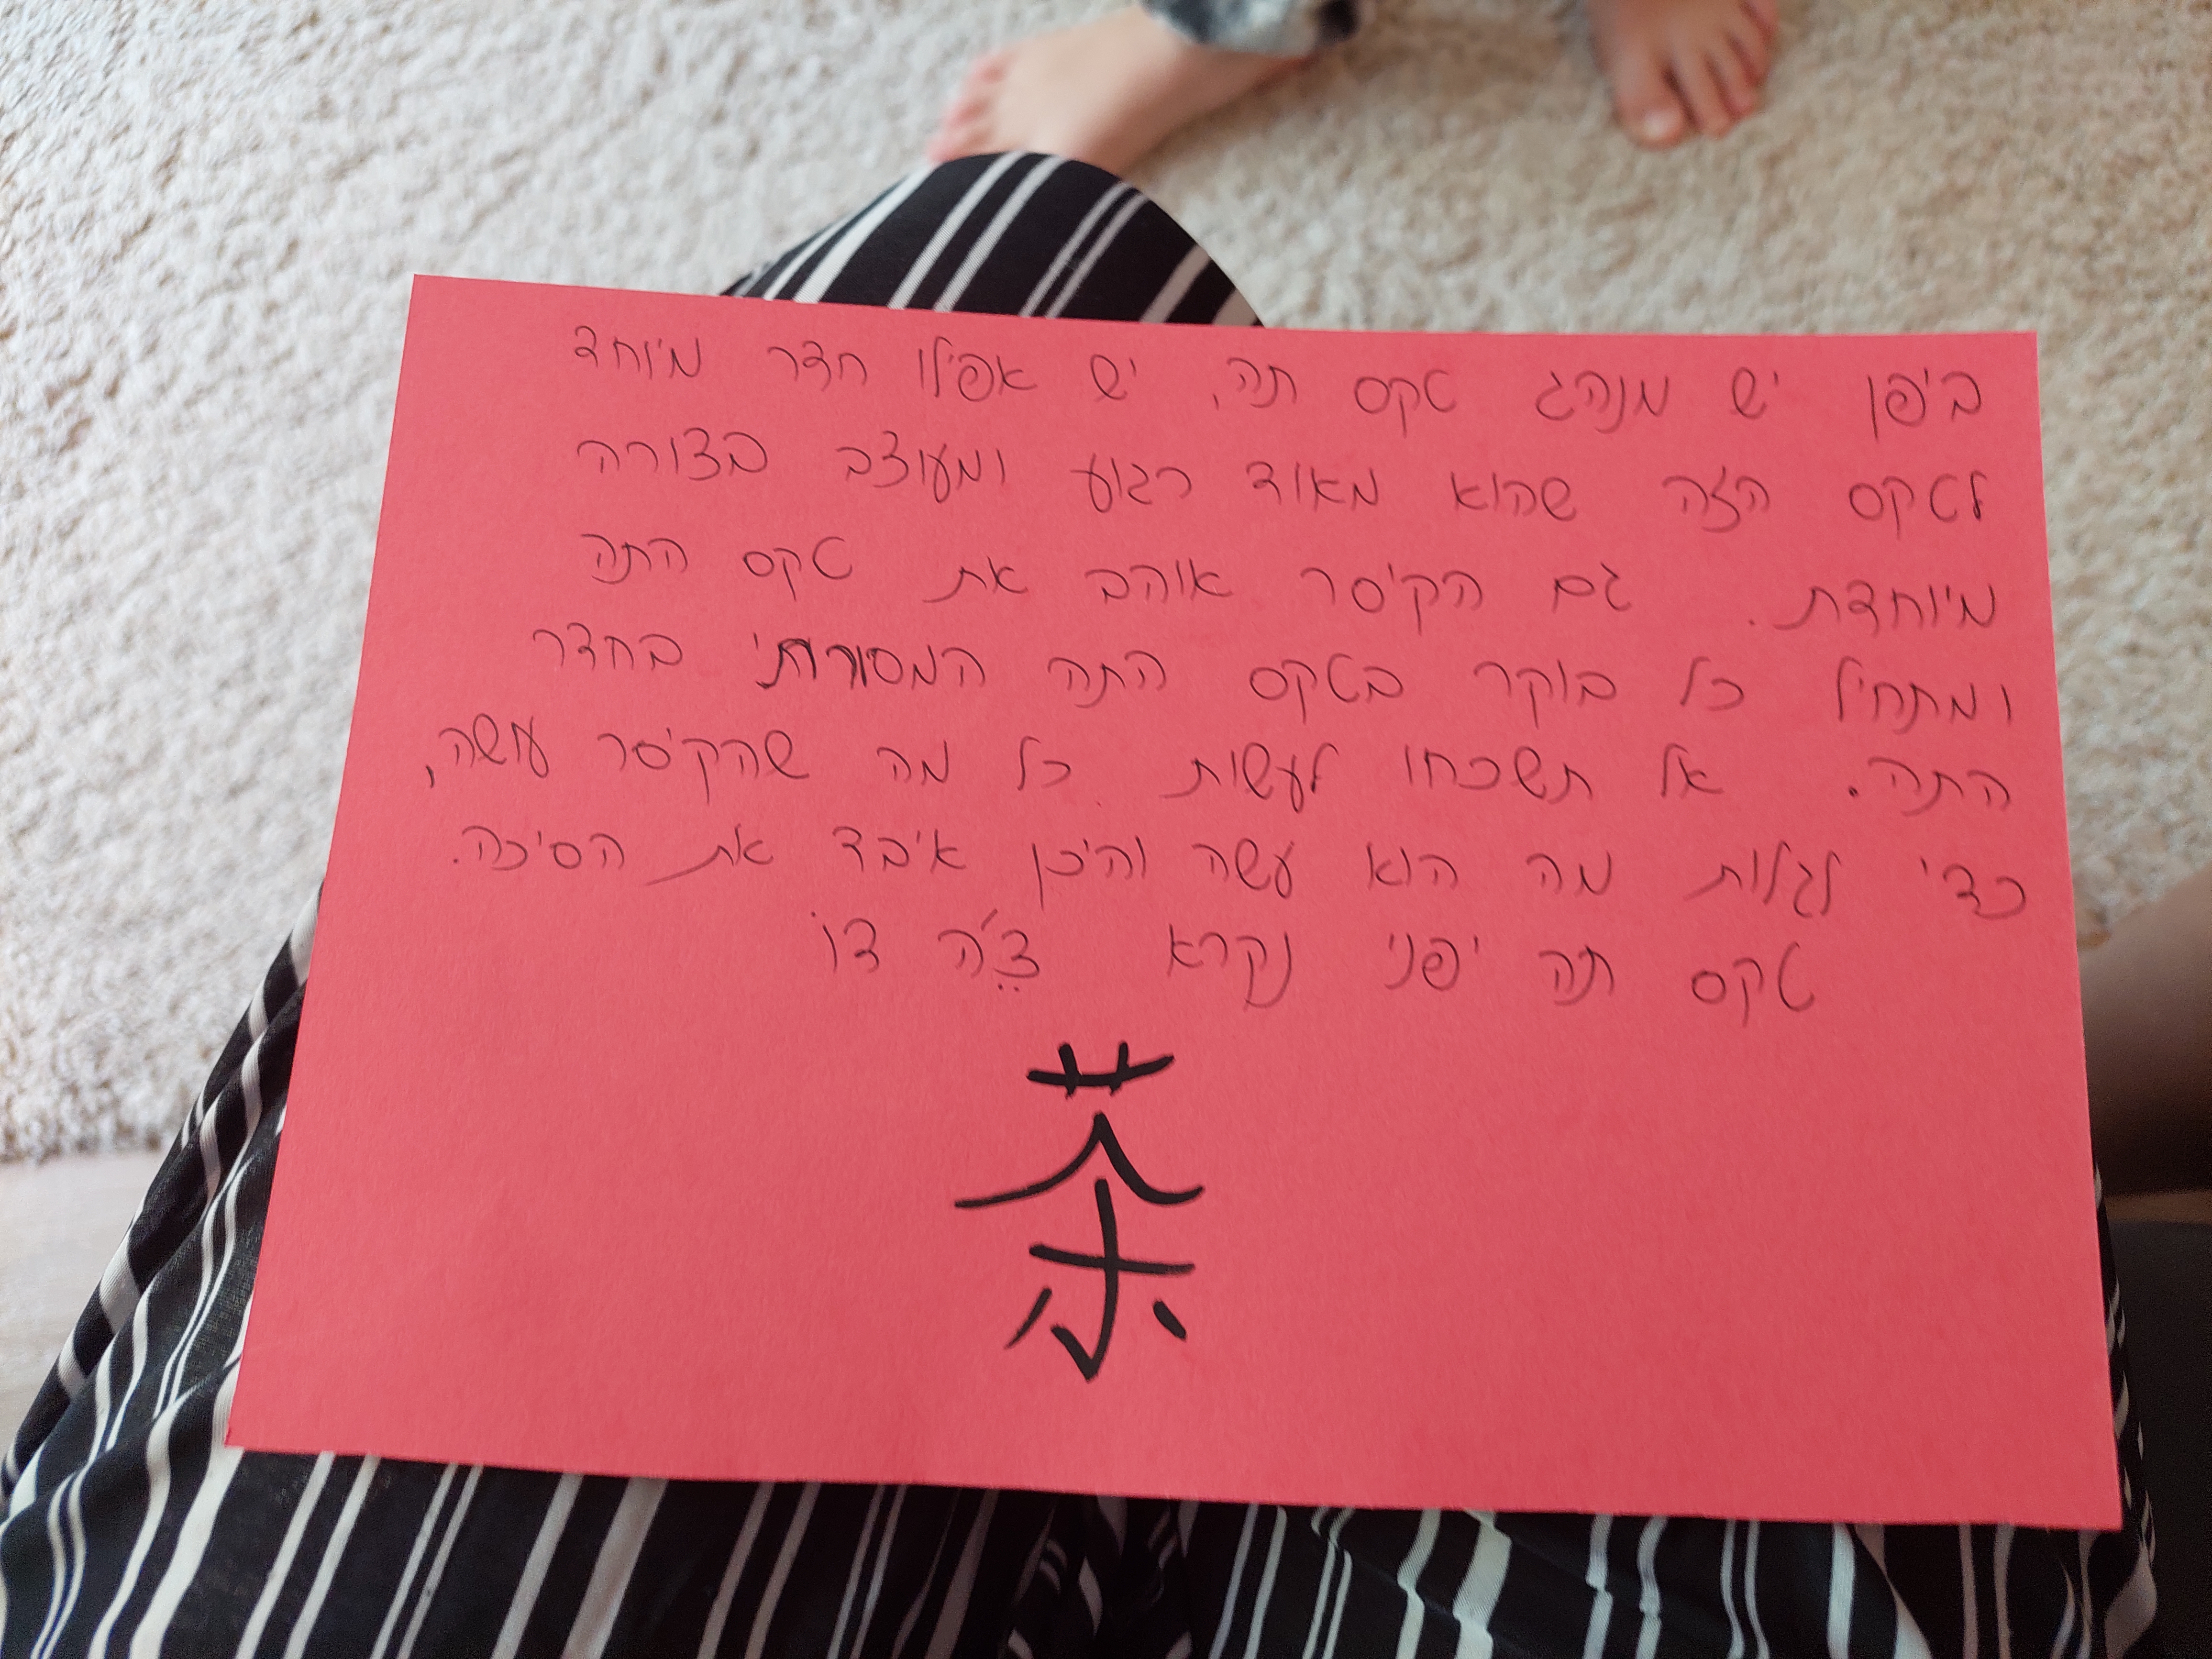 ביפן יש מנהג טקס תה, יש אפילו חדר מיוחד
לטקס הזה שהוא מאוד רגוע ומעוצב בצורה
מיוחדת. גם הקיסר אוהב את טקס התה
ומתחיל כל בוקר בטקס התה המסורתי בחדר
התה. אל תשכחו לעשות כל מה שהקיסר עושה,
כדי לגלות מה הוא עשה והיכן איבד את הסיכה.
טקס תה יפני נקרא צֶ'ה דוֹ
茶